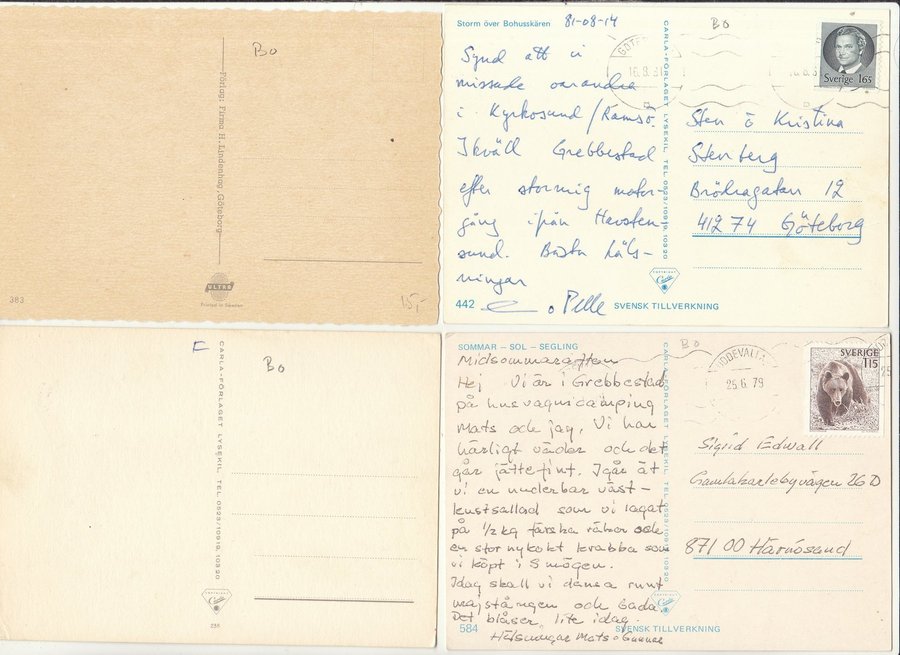 Bo
Förlag: Firma H. Lindenhag, Göteborg
ULTRA
383
10,-
Storm över Bohusskären
81-08-14
BO
Synd att vi
missade varandra
i Kyrkosund / Ramsö.
Ikväll Grebbestad
efter stormig motor-
gång ifrån Havsten-
sund. Bästa häls-
ningar
o. Pelle
442
SVENSK TILLVERKNING
CARLA-FÖRLAGET LYSEKIL TEL 0523/10919, 10320
Carla
GÖTE
16.8.81
Sverige 165
Sten o Kristina
Stenberg
Brödragatan 12
412 74 Göteborg
F
BO
CARLA-FÖRLAGET LYSEKIL TEL 0523/10919, 10320
Carla
SOMMAR – SOL – SEGLING
BO
Midsommarafton
Hej Vi är i Grebbestad
på husvagnscamping
Mats och jag. Vi har
härligt väder och det
går jättefint. Igår åt
vi en underbar väst-
kustsallad som vi lagat
på 1/2 kg färska räkor och
en stor nykokt krabba som
vi köpt i Smögen.
Idag skall vi dansa runt
majstången och bada.
Det blåser lite idag.
Hälsningar Mats o Gunnel
584
SVENSK TILLVERKNING
CARLA-FÖRLAGET LYSEKIL TEL 0523/10919, 10320
Carla
UDDEVALLA
25.6.79
SVERIGE
115
Sigrid Edwall
Gamlakarlebyvägen 26 D
871 00 Härnösand